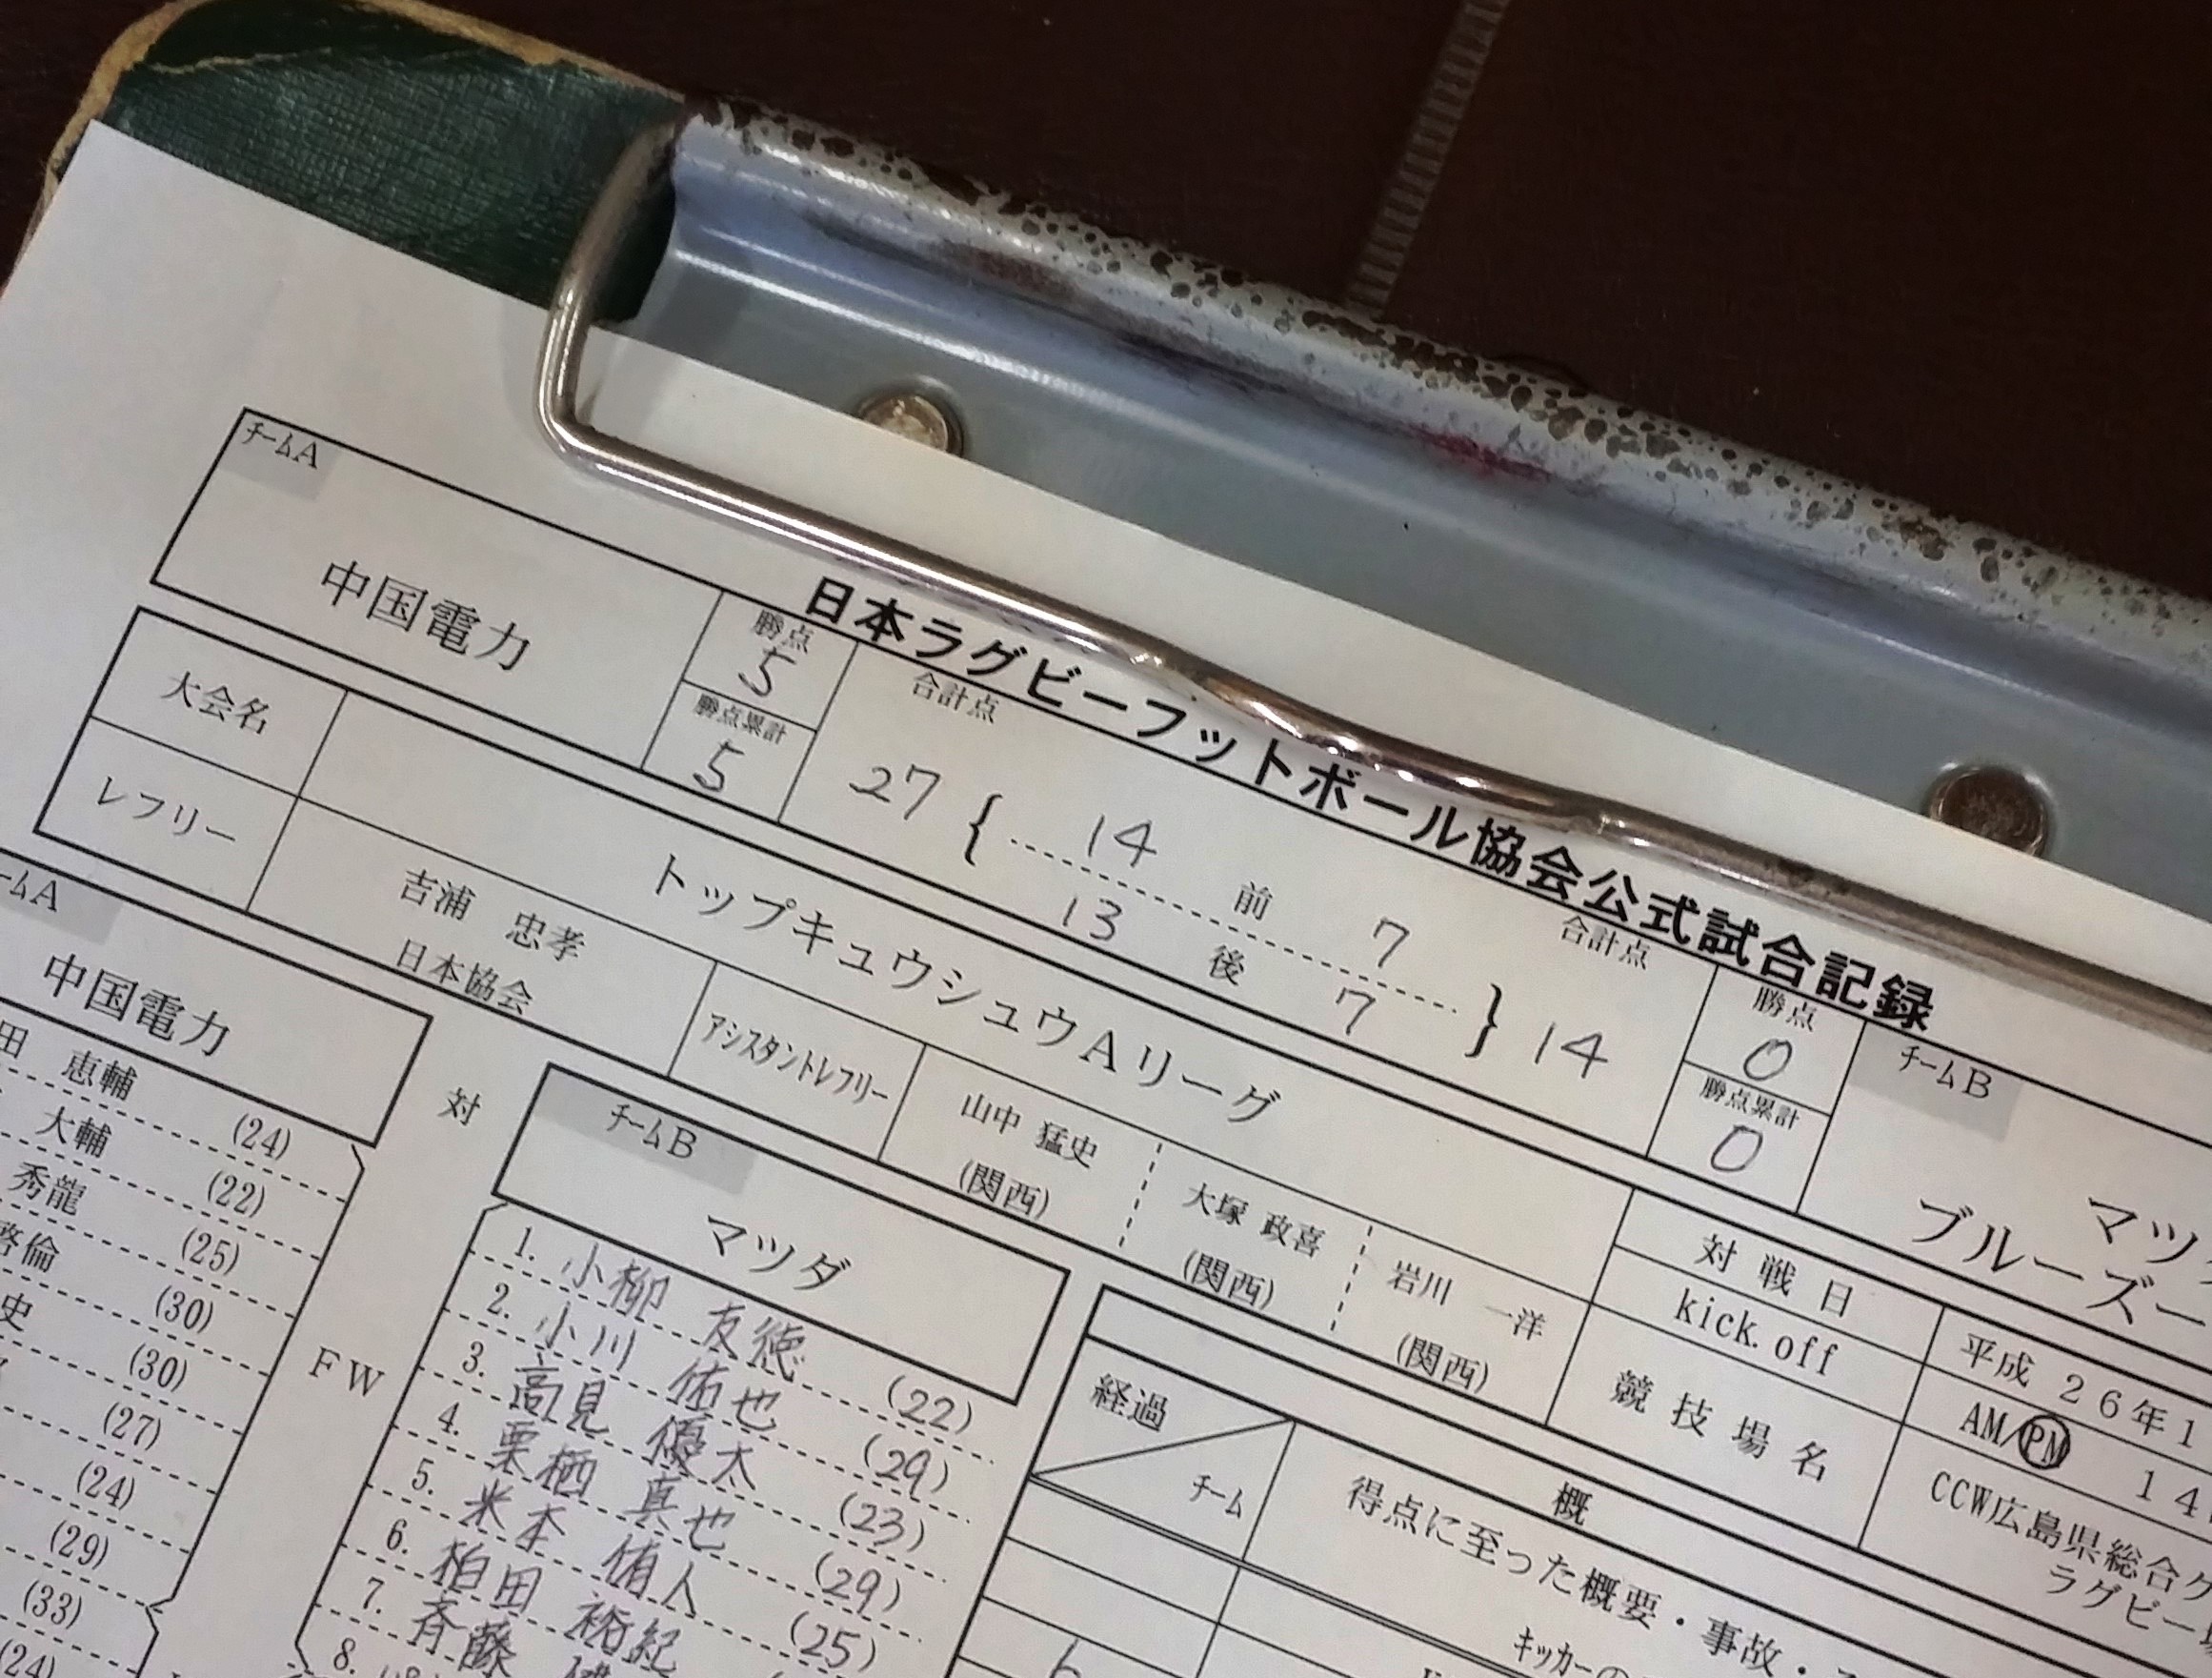 日本ラグビーフットボール協会公式試合記録
チームA
中国電力
勝点
5
勝点累計
5
合計点
27 { 14 前 7 } 14
13 後 7
合計点
勝点
0
勝点累計
0
チームB
マツ
ブルーズー
大会名
トップキュウシュウAリーグ
レフリー
吉浦 忠孝
日本協会
アシスタントレフリー
山中 猛史
(関西)
大塚 政喜
(関西)
岩川 一洋
(関西)
対戦日
平成 26年1
kick.off
AM/PM 14
競技場名
CCW広島県総合グ
ラグビー
ームA
中国電力
対
チームB
マツダ
田 恵輔 (24)
大輔 (22)
秀龍 (25)
啓倫 (30)
史 (30)
(27)
(24)
(29)
(33)
(24)
FW
1. 小柳 友徳 (22)
2. 小川 佑也 (29)
3. 高見 優太 (23)
4. 栗栖 真也 (29)
5. 米本 侑人 (25)
6. 柏田 裕紀
7. 斉藤
8.
経過
チーム
概
得点に至った概要・事故・
キッカーの